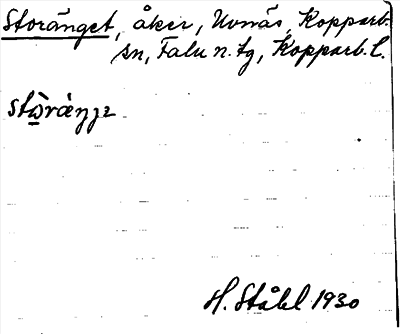 Storänget, åker, Uvnäs, Kopparb.
sn, Falu n. tg, Kopparb. l.
H. Ståhl 1930